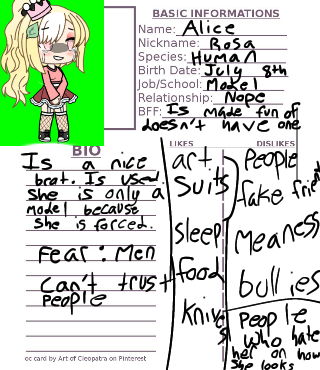 BASIC INFORMATIONS
Name: Alice
Nickname: Rosa
Species: Human
Birth Date: July 8th
Job/School: Model
Relationship: Nope
BFF: Is made fun of
doesn't have one
BIO
Is a nice
brat. Is used.
She is only a
model because
She is forced.
Fear: Men
Can't trust
people
LIKES
art
Suits
sleep
food
knives
DISLIKES
People
fake friend
Meaness
bullies
People
who hate
her on how
She looks
oc card by Art of Cleopatra on Pinterest